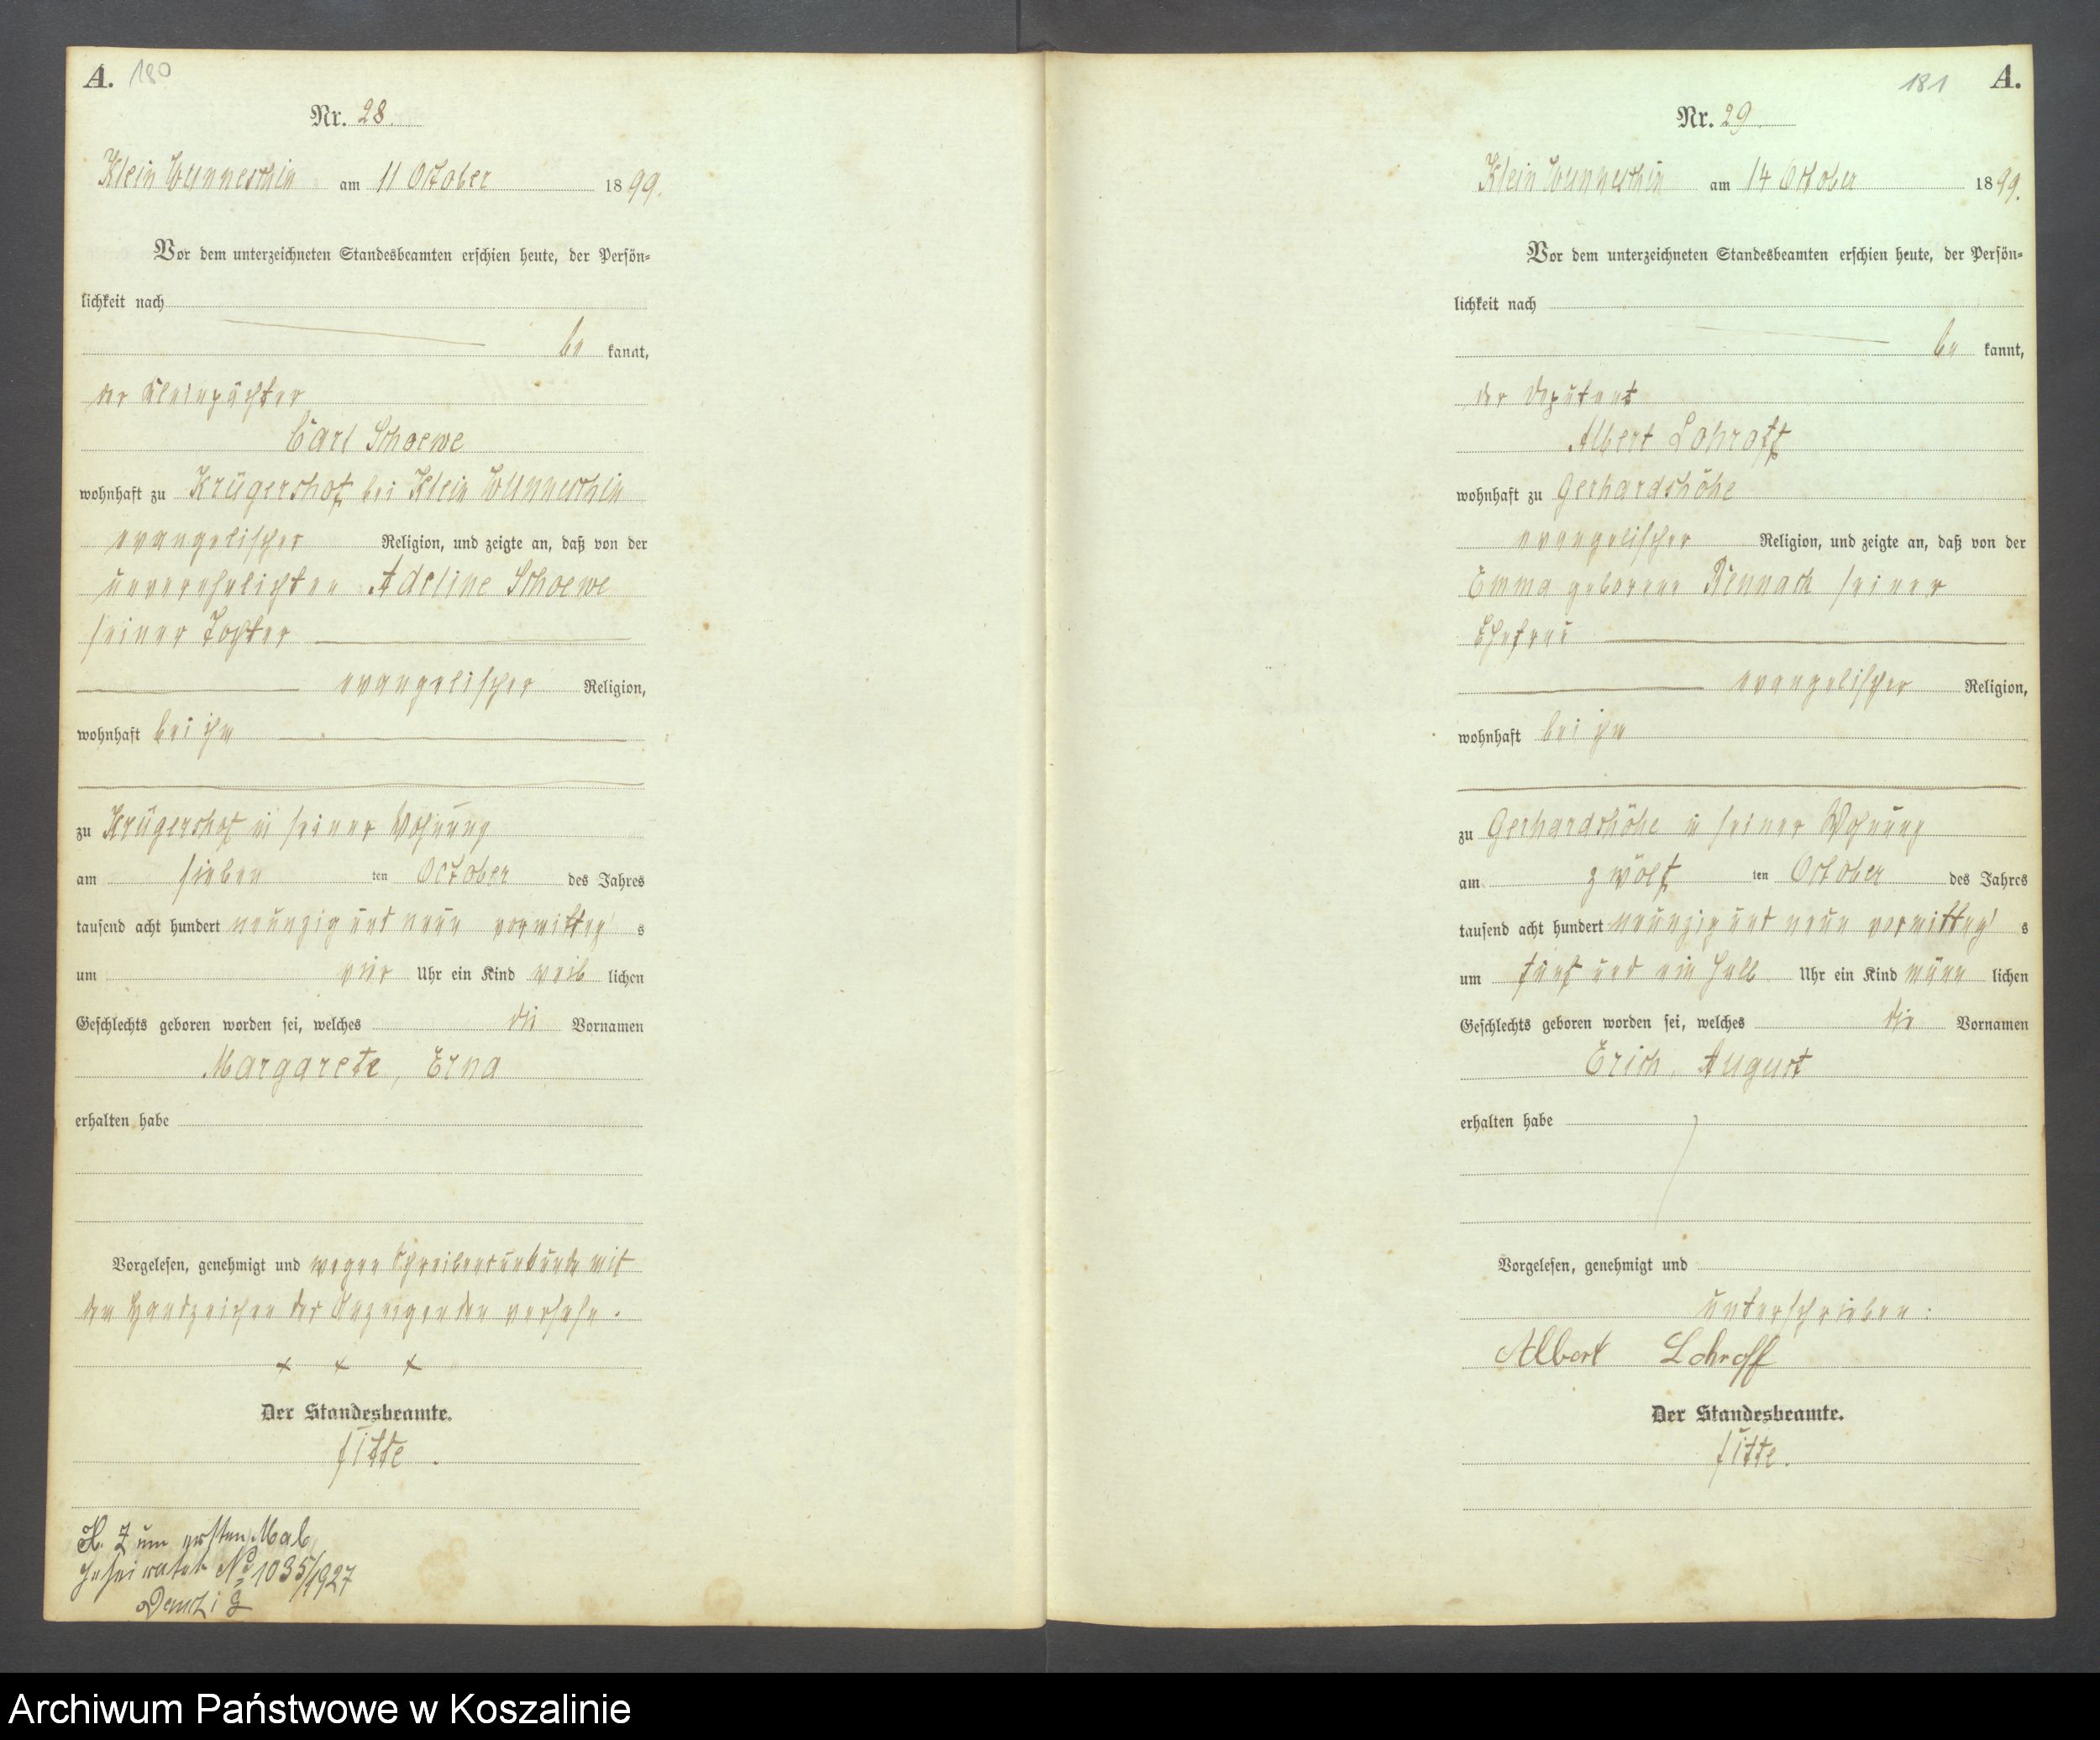 A. 180
Nr. 28.
Klein Wunneschin am 11 October 1899.
Vor dem unterzeichneten Standesbeamten erschien heute, der Persön-
lichkeit nach
be kannt,
der Kleinpächter
Carl Schoewe
wohnhaft zu Krügershof bei Klein Wunneschin
evangelischer Religion, und zeigte an, daß von der
unverehelichten Adeline Schoewe
seiner Tochter
evangelischer Religion,
wohnhaft bei ihm
zu Krügershof in seiner Wohnung
am sieben ten October des Jahres
tausend acht hundert neunzig und neun vormittag s
um vier Uhr ein Kind weib lichen
Geschlechts geboren worden sei, welches die Vornamen
Margarete, Erna
erhalten habe
Vorgelesen, genehmigt und wegen Schreibensunkunde mit
dem Handzeichen des Anzeigenden versehn.
+ + +
Der Standesbeamte.
H. Zum ersten Mal
geheiratet No 1035/1927
Danzig
181 A.
Nr. 29.
Klein Wunneschin am 14 October 1899.
Vor dem unterzeichneten Standesbeamten erschien heute, der Persön-
lichkeit nach
be kannt,
der Deputant
Albert Lohroff
wohnhaft zu Gerhardshöhe
evangelischer Religion, und zeigte an, daß von der
Emma geborene Rennack seiner
Ehefrau
evangelischer Religion,
wohnhaft bei ihm
zu Gerhardshöhe in seiner Wohnung
am zwölf ten October des Jahres
tausend acht hundert neunzig und neun vormittag s
um fünf und ein halb Uhr ein Kind männ lichen
Geschlechts geboren worden sei, welches die Vornamen
Erich, August
erhalten habe
Vorgelesen, genehmigt und
unterschrieben:
Albert Lohroff
Der Standesbeamte.
Archiwum Państwowe w Koszalinie